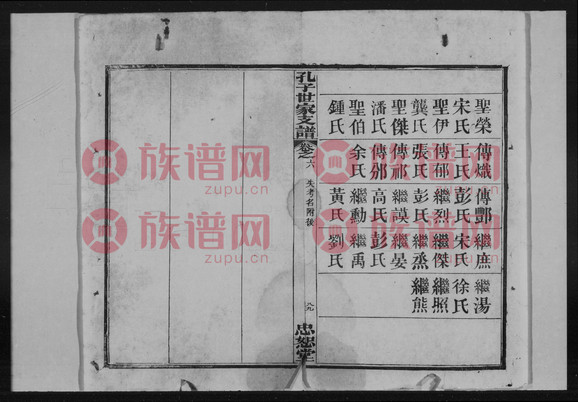 聖榮 傳熾 傳酆 繼庶 繼湯
宋氏 王氏 彭氏 宋氏 徐氏
聖伊 傳郁 繼烈 繼傑 繼照
龔氏 張氏 彭氏 繼烝 繼熊
聖傑 傳祁 繼謨 繼晏
潘氏 傳邠 高氏 彭氏
聖伯 余氏 繼勳 繼禹
鍾氏 黃氏 劉氏
孔子世家支譜 卷之六 失考名附後 忠恕堂
族谱网
zupu.cn
族谱网
zupu.cn
族谱网
zupu.cn
族谱网
zupu.cn